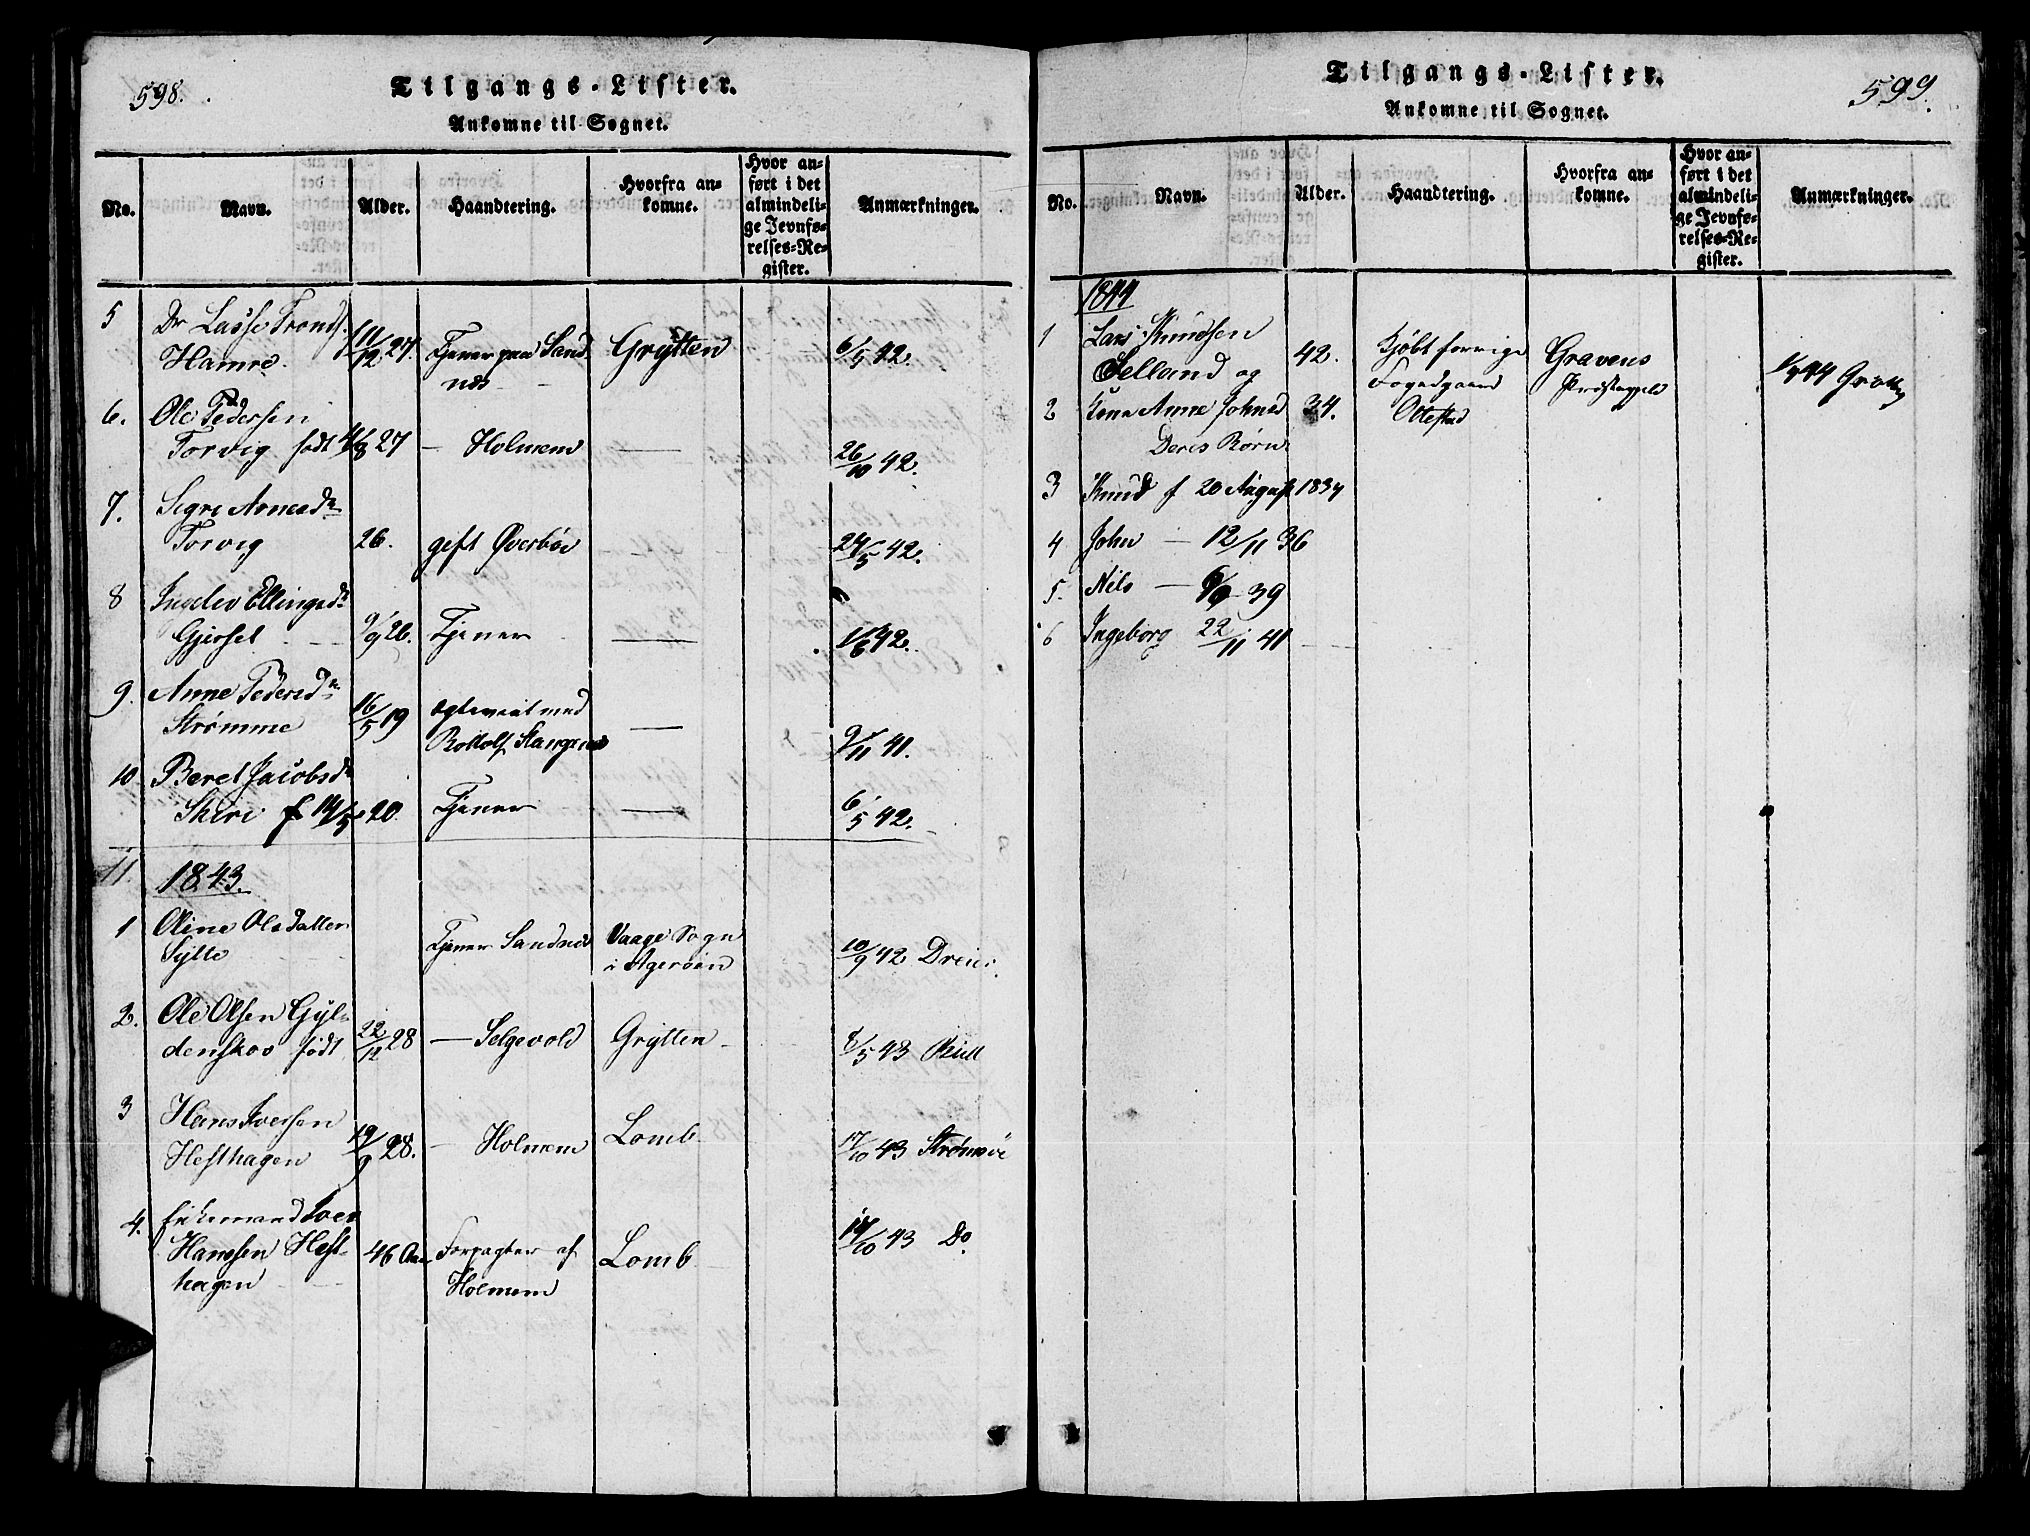 598.
Tilgangs-Lister.
Ankomne til Sognet.
No. Navn. Alder. Haandtering. Hvorfra ankomne. Hvor anført i det almindelige Jevnførelses-Register. Anmærkninger.
5 Dr Lasse Tronds. Hamre. 11/12 27. Tjener paa Sandnes Grytten 6/5 42.
6. Ole Pedersen Torvig født 4/8 27 — Holmem — 26/10 42.
7. Sigri Arnesdr Torvig 26. gift Øverbøe — 24/5 42.
8 Ingelev Ellingsdr Gjerset 9/9 26. Tjener — 1/6 42.
9. Anne Pedersdr Strømme 16/5 19 Egteviet med Rollolf Stangenes — 9/11 41.
10 Beret Jacobsdr Skiri f 14/5 20 Tjener — 6/5 42.
11. 1843.
1 Oline Olsdatter Sylte Tjener Sandnes Vaage Sogn i Agerøen 10/9 42 Dreier.
2. Ole Olsen Gyldenskov født 22/12 28 — Selgevold Grytten 6/5 43
3 Hans Iversen Hesthagen 19/9 28. — Holmem Lomb 17/10 43 Strømsøe
4. Enkemand Iver Hanssen Hesthagen 46 Aar Forpagter af Holmem Lomb 17/10 43 Do
599.
Tilgangs-Lister.
Ankomne til Sognet.
No. Navn. Alder. Haandtering. Hvorfra ankomne. Hvor anført i det almindelige Jevnførelses-Register. Anmærkninger.
1844
1 Lars Knudsen Selland og 42. Kjøbt forrige Fogedgaard Ottestad Gravens Præstegjeld 44
2 Kone Anne Johnsd 34.
Deres Børn
3 Knud f 20 August 1834
4 John — 12/11 36
5. Nils — 39
6 Ingeborg 22/11 41